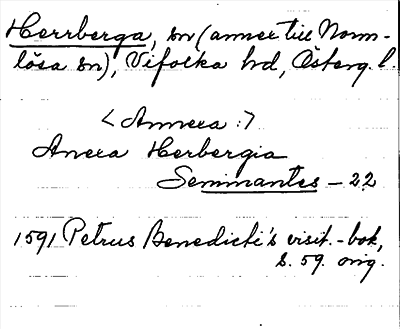 Herrberga, sn (annex till Norm-
lösa sn), Vifolka hd, Österg. l.
< Annexa :>
Anexa Herbergia
Seminantes - 22
1591 Petrus Benedicti's visit.-bok,
s. 59. orig.